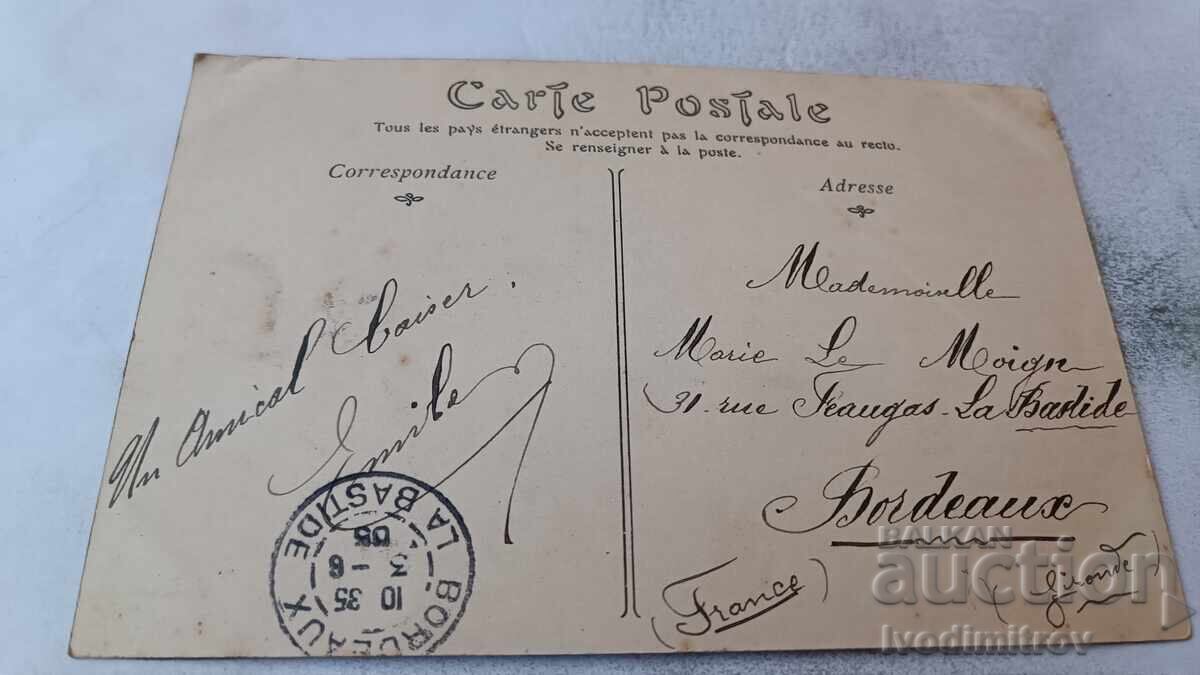 Carte Postale
Tous les pays étrangers n'acceptent pas la correspondance au recto.
Se renseigner à la poste.
Correspondance
Un Amical baiser.
Emile
BORDEAUX
LA BASTIDE
10 35
3 - 6
05
Adresse
Mademoiselle
Marie Le Moign
31. rue Feaugas - La Bastide
Bordeaux
(France)
(Gironde)
BALKAN
auction
Ivodimitrov